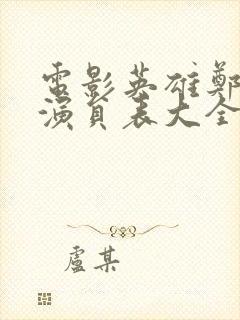 電影英雄鄭
演員表大全
盧某